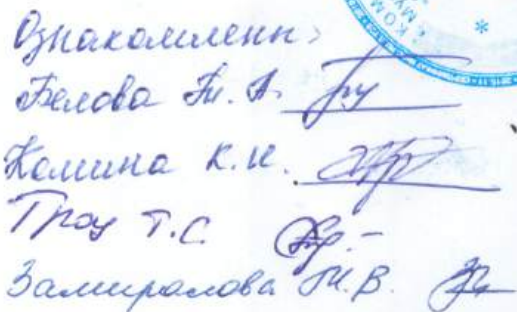 Ознакомленны:
Белова Т.А.
Комина К.И.
Гроу Т.С.
Замиралова Т.В.
КОМ
МУ